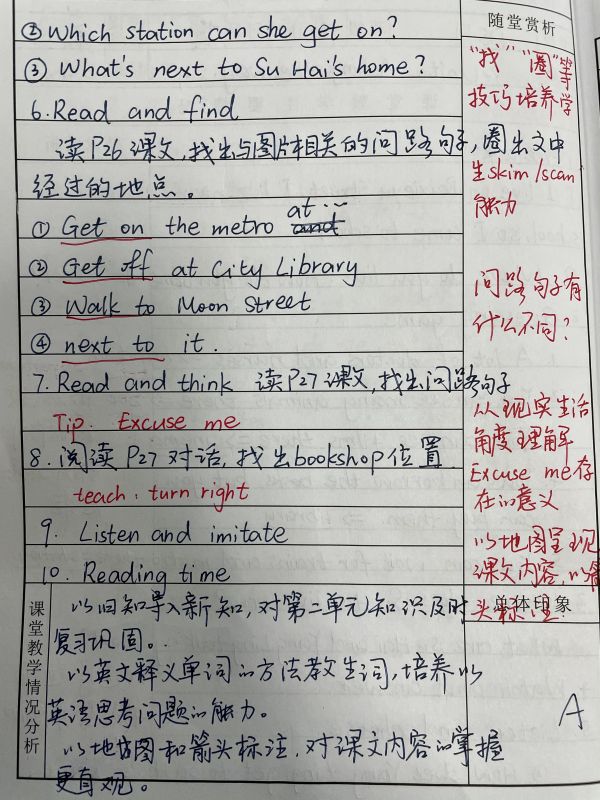 ②Which station can she get on?
③ What's next to Su Hai's home?
6.Read and find
读P26课文,找出与图片相关的问路句子,圈出文中
经过的地点。
① Get on the metro at… and
② Get off at City Library
③ Walk to Moon Street
④ next to it.
7. Read and think 读P27课文,找出问路句子
Tip. Excuse me
8. 阅读P27对话,找出bookshop位置
teach: turn right
9. Listen and imitate
10. Reading time
随堂赏析
"找""圈"等
技巧培养学
生skim/scan
能力
问路句子有
什么不同?
从现实生活
角度理解
Excuse me存
在的意义
以地图呈现
课文内容,以箭
头标注.
总体印象
A
课堂教学情况分析
以旧知导入新知,对第二单元知识及时
复习巩固。
以英文释义单词的方法教生词,培养以
英语思考问题的能力。
以地图和箭头标注,对课文内容的掌握
更直观。